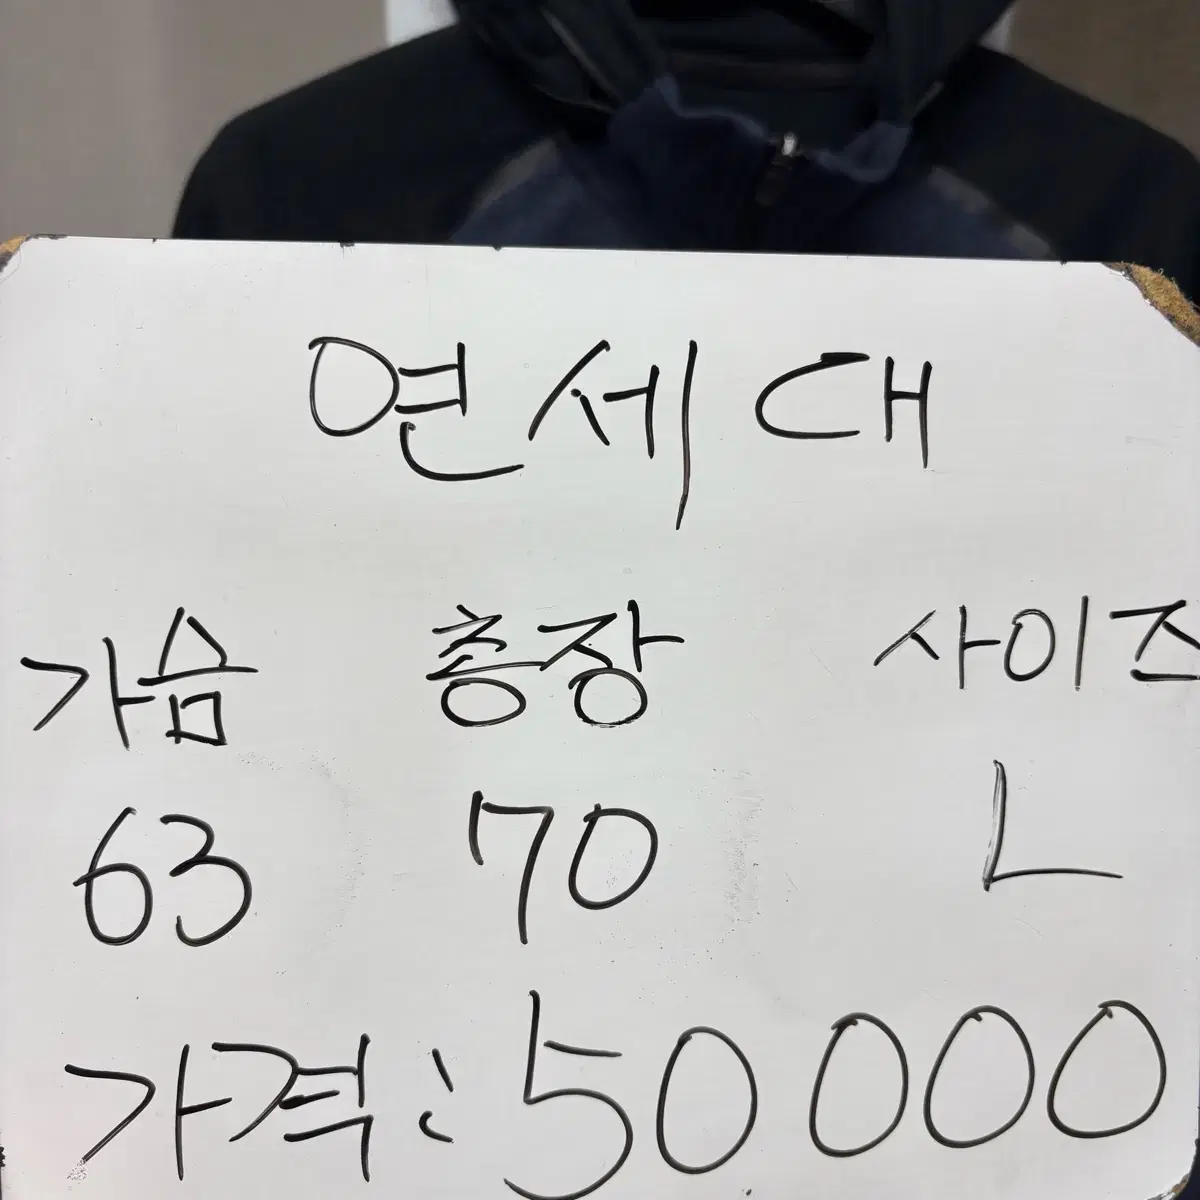 연세대
가슴 총장 사이즈
63 70 L
가격: 50000